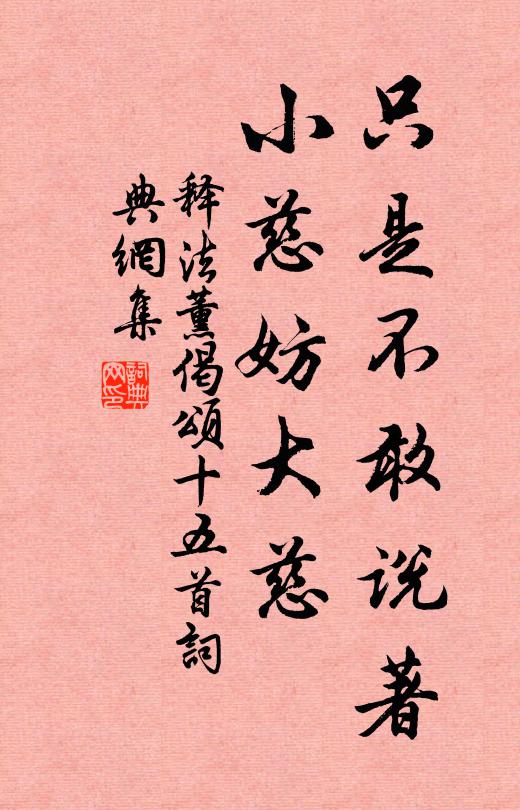 只是不敢説著
小慈妨大慈
释法薰偈頌十五首詞
典網集
詞典网印